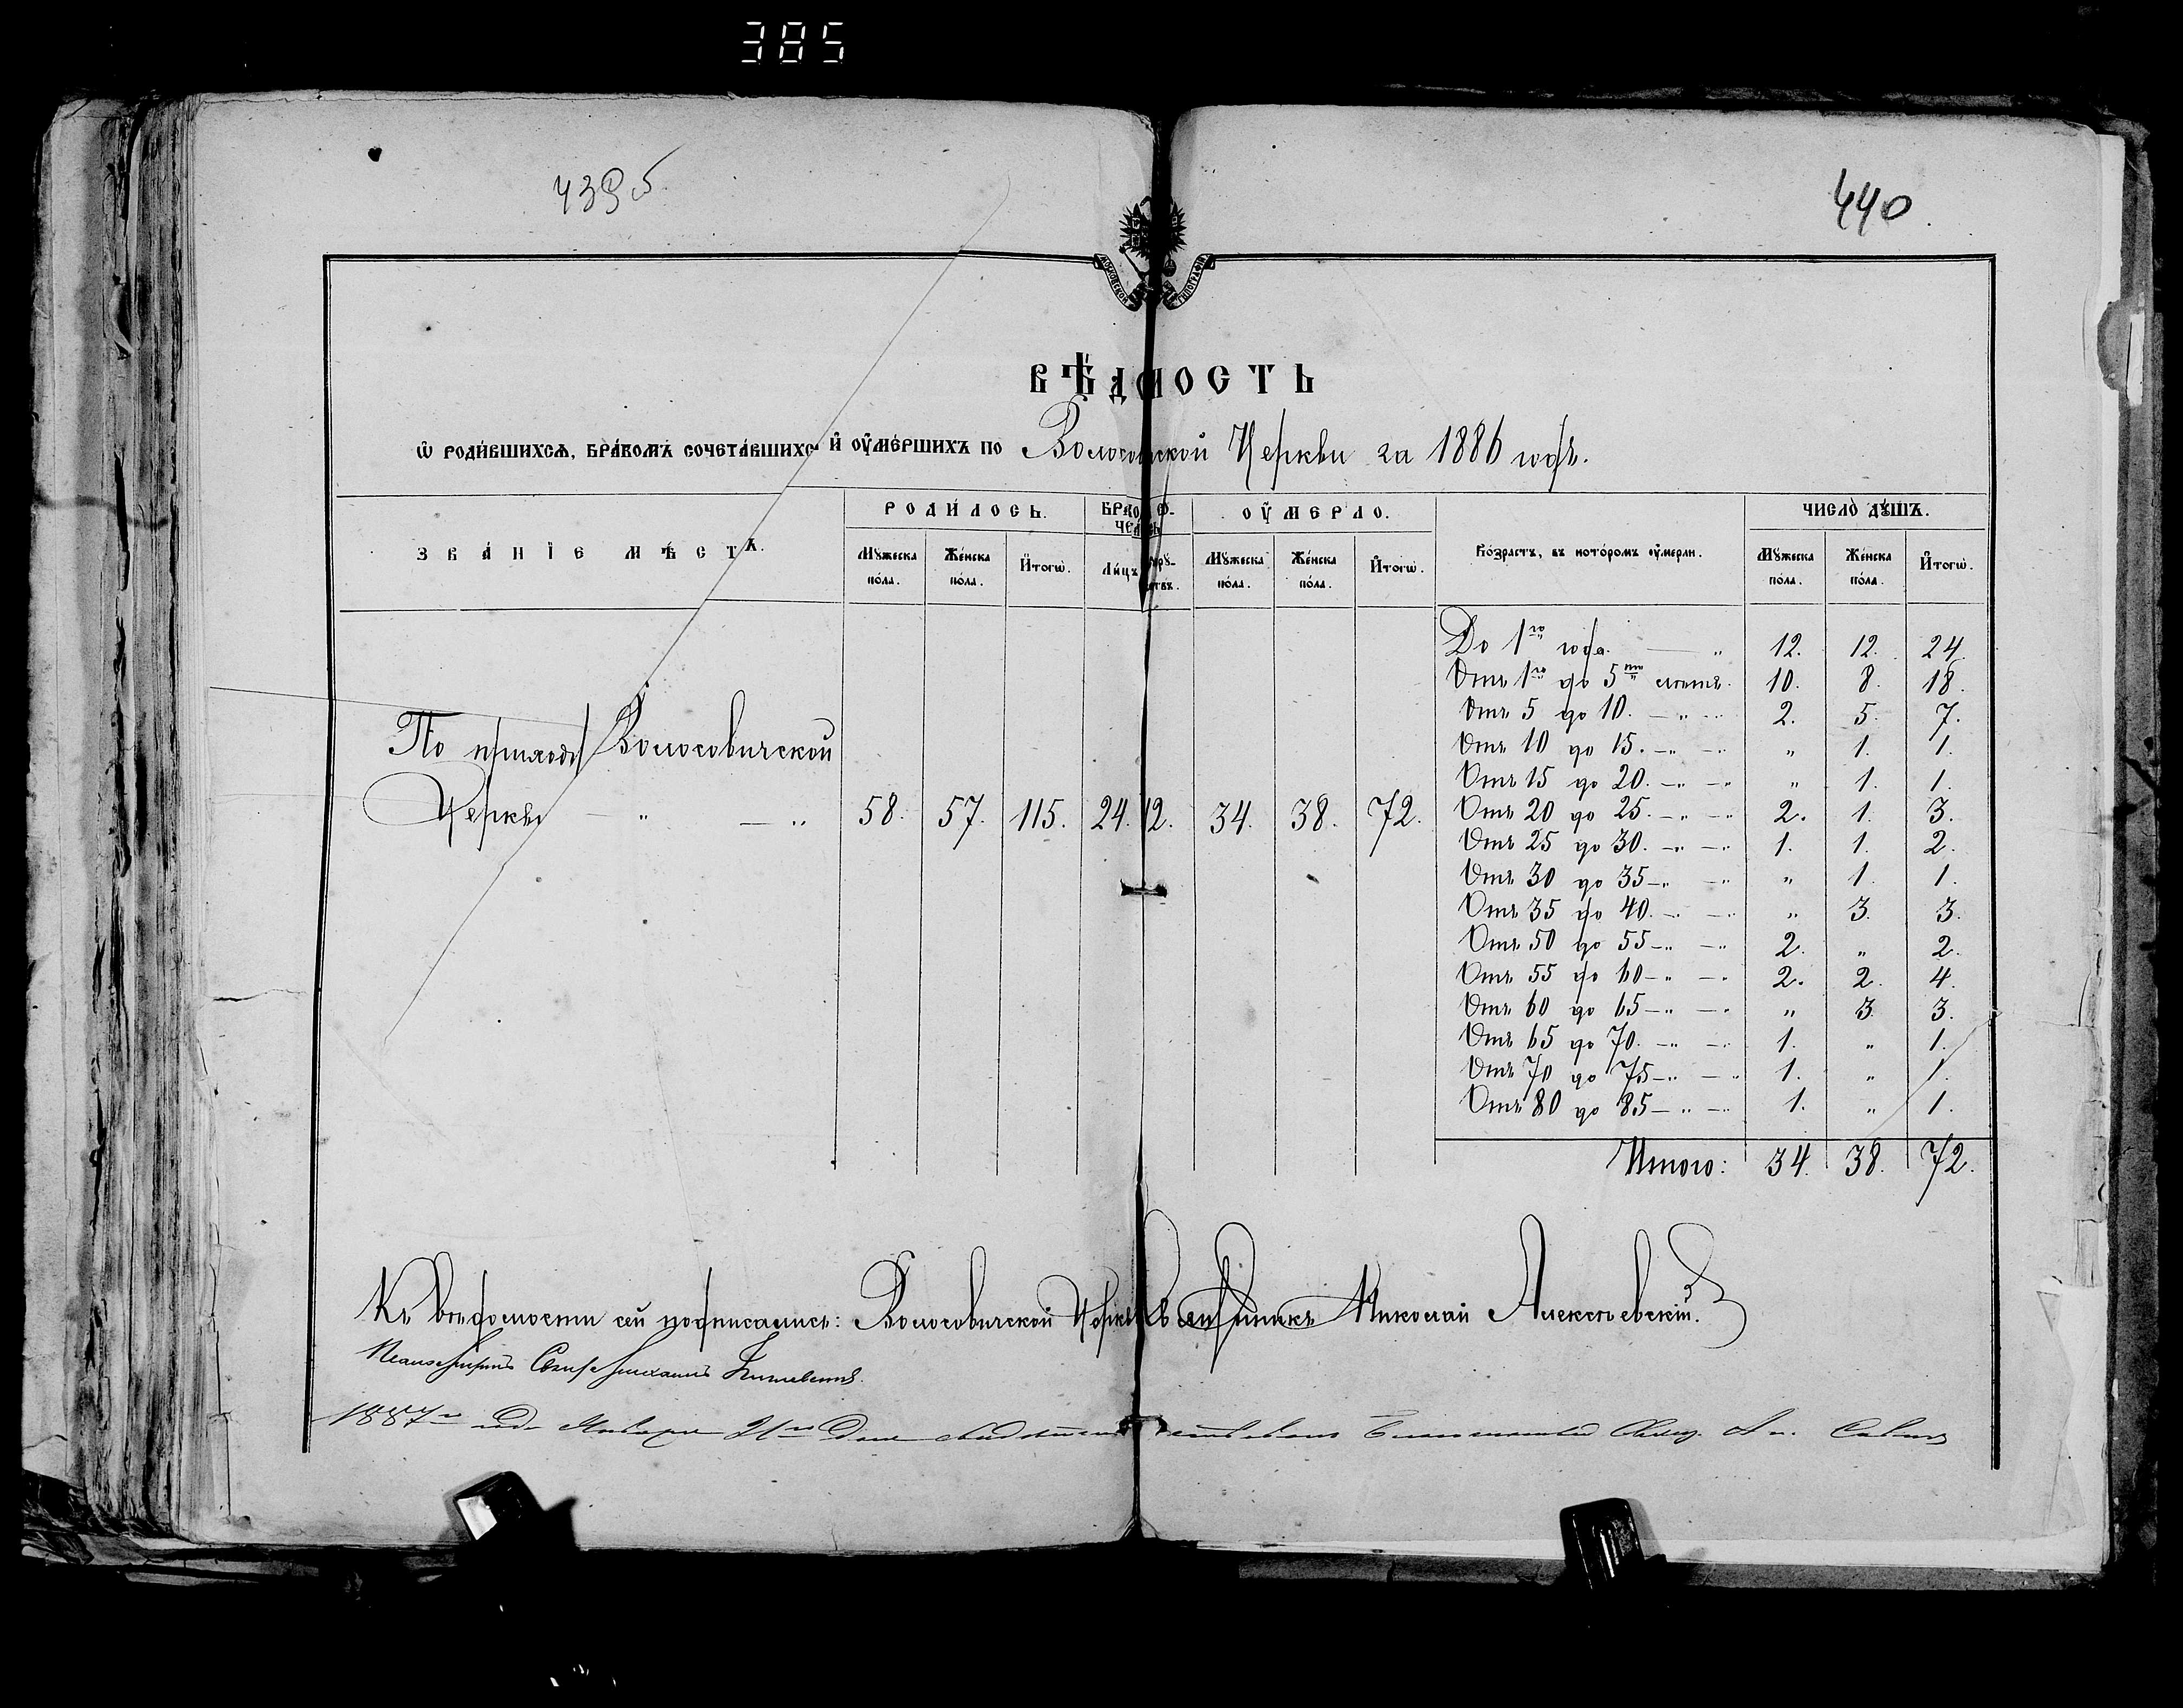 385
439 б
440
МОСКОВСКОЙ ТИПОГРАФІИ
ВѢДМОСТЬ
Ѡ РОДИВШИХСѦ, БРАКОМЪ СОЧЕТАВШИХС И ОУМЕРШИХЪ ПО Волосовичской Церкви за 1886 годъ.
ЗВАНІЕ МѢСТЪ.
РОДИЛОСЬ.
ОУМЕРЛО.
Возрастъ, въ которомъ оумерли.
ЧИСЛО ДУШЪ.
Мужеска пола.
Женска пола.
Итогѡ.
Лицъ
Мужеска пола.
Женска пола.
Итогѡ.
Мужеска пола.
Женска пола.
Итогѡ.
По приходу Волосовичской
Церкви — " — " 58. 57. 115. 24. 12. 34. 38. 72.
До 1го года. — " 12. 12. 24.
Отъ 1го до 5ти лѣтъ. 10. 8. 18.
Отъ 5 до 10. — " — 2. 5. 7.
Отъ 10 до 15. — " — " " 1. 1.
Отъ 15 до 20. — " — " " 1. 1.
Отъ 20 до 25. — " — " 2. 1. 3.
Отъ 25 до 30. — " — " 1. 1. 2.
Отъ 30 до 35 — " — " " 1. 1.
Отъ 35 до 40. — " — " " 3. 3.
Отъ 50 до 55 — " — " 2. " 2.
Отъ 55 до 60 — " — " 2. 2. 4.
Отъ 60 до 65 — " — " " 3. 3.
Отъ 65 до 70. — " — " 1. " 1.
Отъ 70 до 75 — " — " 1. " 1.
Отъ 80 до 85 — " — " 1. " 1.
Итого: 34. 38. 72.
Къ вѣдомости сей подписались: Волосовичской Церкви Священникъ Николай Алексѣевскій.
Псаломщикъ
1887го года Января 21го дня